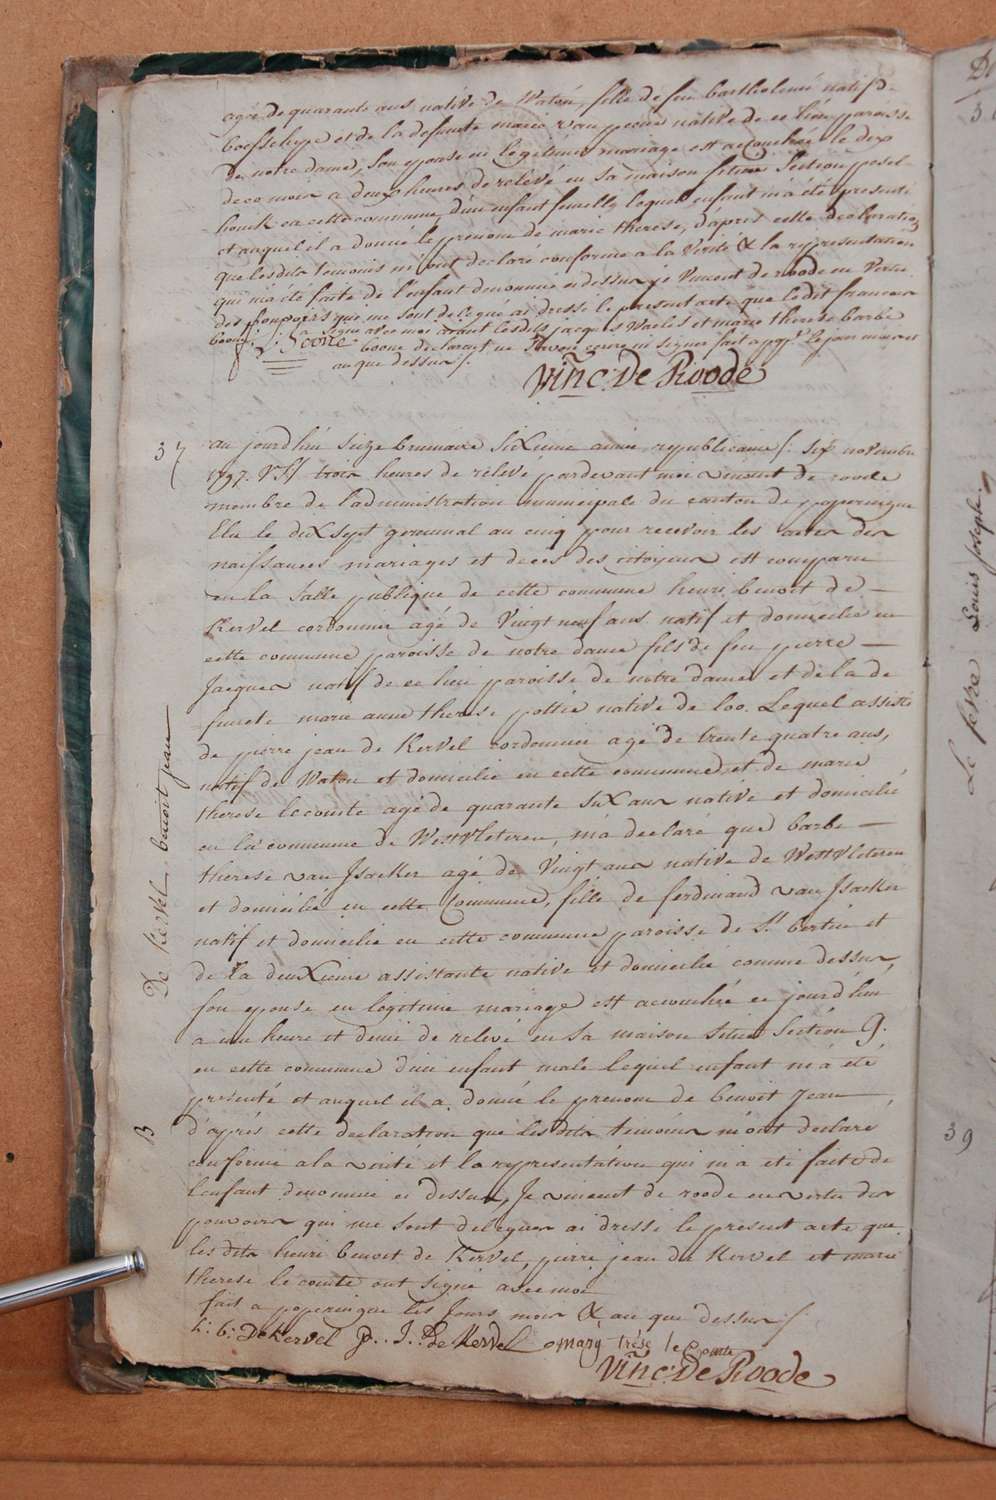 agé de quarante ans native de Watou, fille de feu bartholomé natif de
boesschepe et de la defunte marie van peene native de ce lieu paroisse
de notre dame, son epouse en legitime mariage est accouchée le dix
de ce mois a deux heures de relevé en sa maison située Section
houck en cette commune, d'un enfant femelle lequel enfant m'a été presenté
et auquel il a donné le prenom de marie therese, d'après cette declaration
que lesdits temoins m'ont declaré conforme a la Verité & la representation
qui m'a été faite de l'enfant denommé ci dessus, je Vincent de roode en Vertu
des pouvoirs qui me sont delegué ai dressé le present acte que ledit francois
boone a signé avec moi ayant lesdits jacques Waels et marie therese barbe
boone declarant ne savoir ecrire ni signer fait a pop.e le jour mois et
an que dessus /.
Vinc: De Roode
37
au jourd'hui Seize brumaire Sixieme année republicaine /: six novembre
1797. VSt/ trois heures de relevé pardevant moi vincent de roode
membre de l'administration municipale du canton de poperingue
Elu le dix sept germinal au cinq pour recevoir les actes des
naissances mariages et deces des citoyens est comparu
en la Salle publique de cette commune henri benoit de —
Kervel cordonnier agé de Vingt neuf ans natif et domicilié en
cette commune paroisse de notre dame fils de feu pierre —
Jacques natif de ce lieu paroisse de notre dame et de la de
functe marie anne therese pottié native de loo. Lequel assisté
de pierre jean de Kervel cordonnier agé de trente quatre ans,
natif de Watou et domicilié en cette commune, et de marie
therese lecomte agé de quarante Six ans native et domicilié
en la commune de Westvleteren, m'a declaré que barbe —
therese van Isacker agé de Vingt ans native de Westvleteren
et domicilié en cette Commune, fille de ferdinand van Isacker
natif et domicilié en cette commune paroisse de St bertin et
de la deuxieme assistante native et domicilié comme dessus,
son epouse en légitime mariage est accouchée ce jourd'hui
a une heure et demie de relevé en sa maison située Section G.
en cette commune d'un enfant male lequel enfant m'a été
presenté et auquel il a donné le prenom de benoit Jean,
d'après cette declaration que les dits témoins m'ont declaré
conforme a la verité et la representation qui m'a été faite de
l'enfant denommé ci dessus, Je vincent de roode en vertu des
pouvoirs qui me sont delegués ai dressé le present acte que
les dits henri benoit de Kervel, pierre jean de Kervel et marie
therese le comte ont signé avec moi
fait a poperingue les Jours mois & an que dessus /.
h: b: deKervel P. J. De Kervel mary trese le Comte
Vinc: De Roode
De Kervel benoit jean
B
Le fevre Louis joseph
39